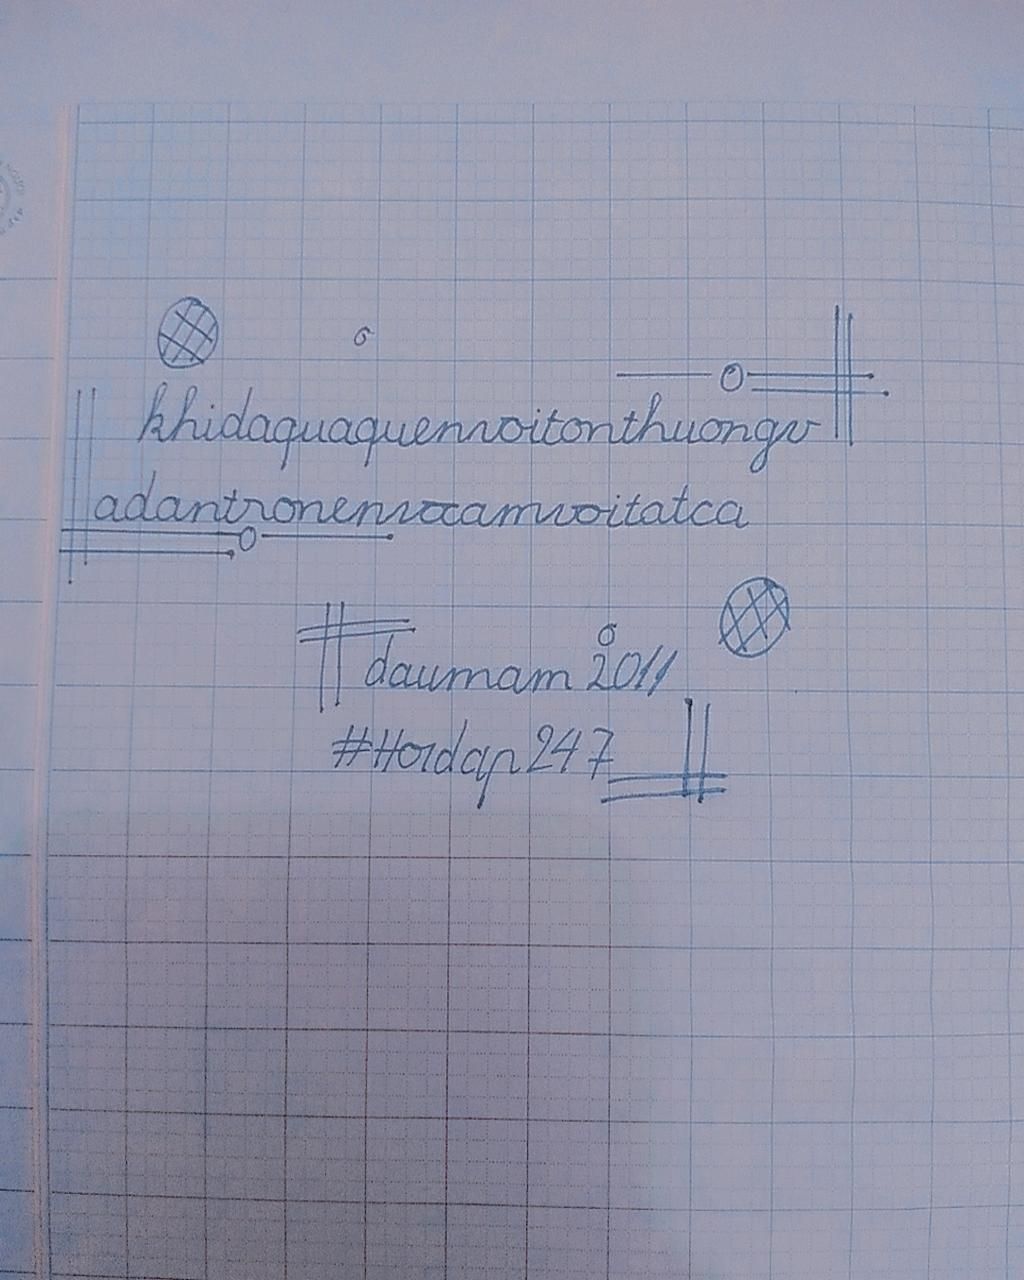 khidaquaquenvoitonthuongv
adantronenvocamvoitatca
daumam 2011
#Hoidap247